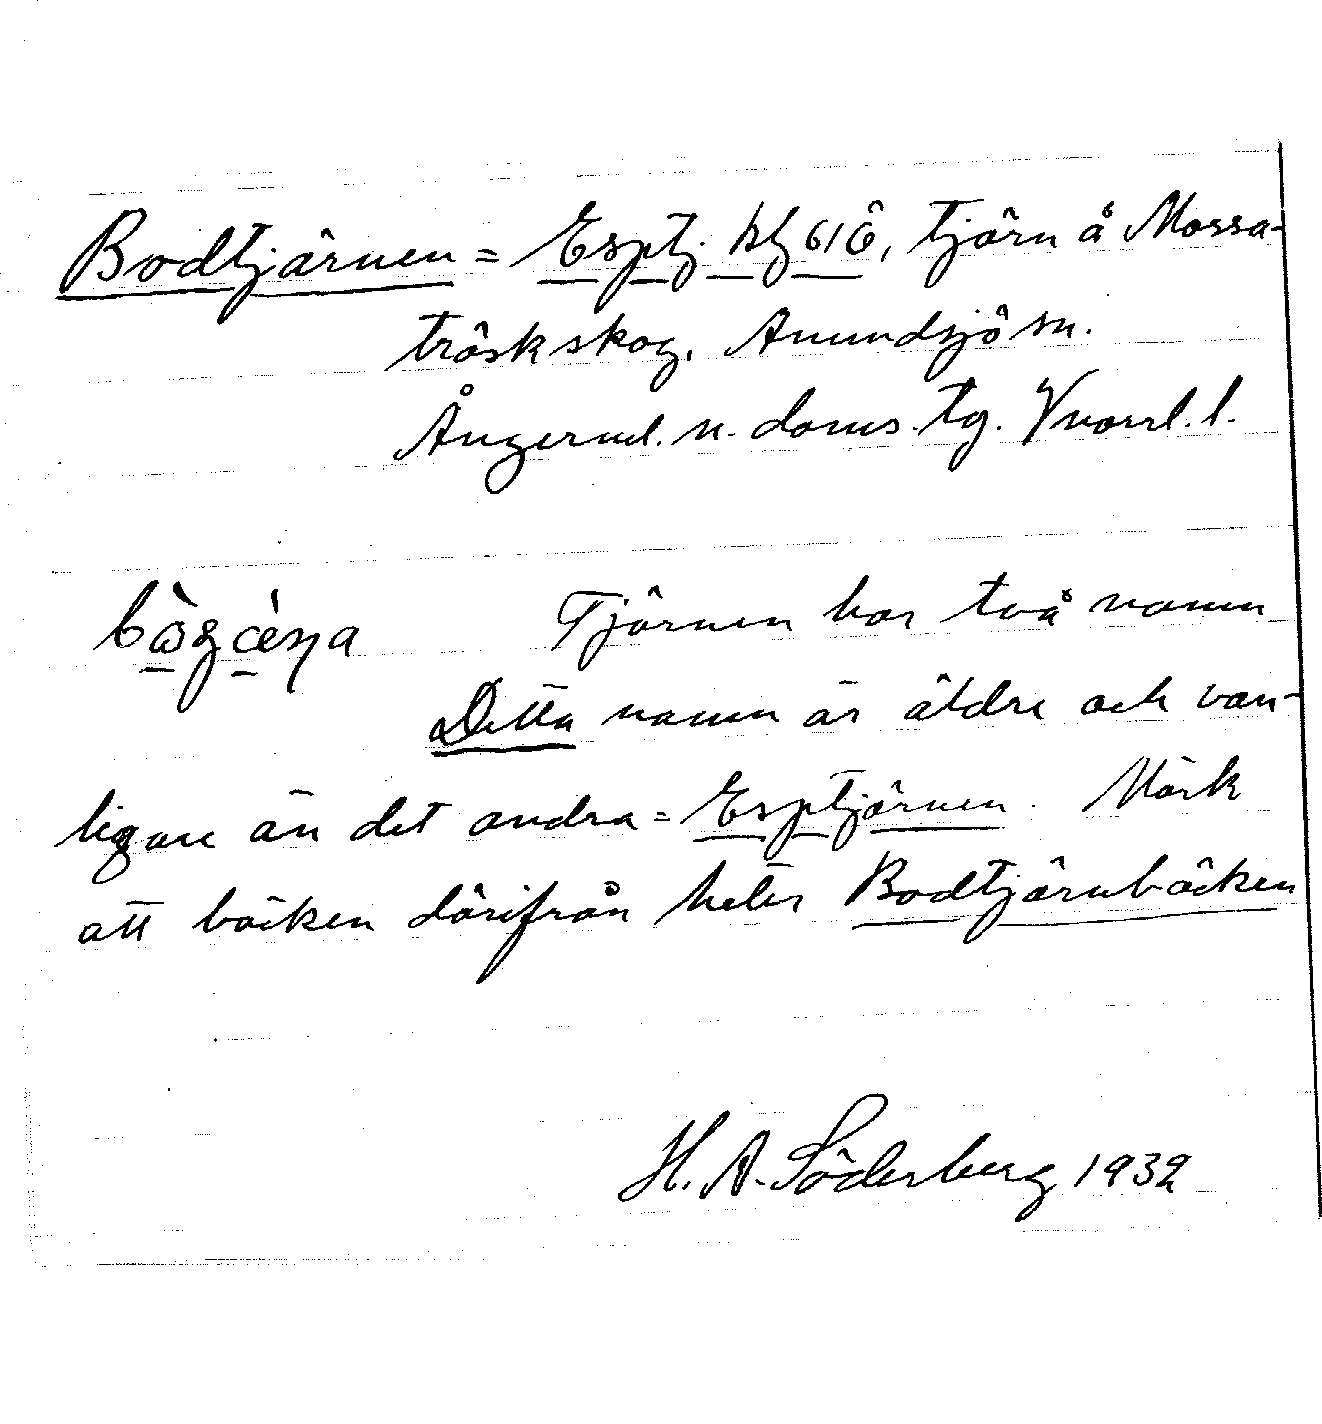 Bodtjärnen = Esptj. kbl 61 Ö, tjärn å Mossa-
träsk skog. Anundsjö sn.
Ångerml. n. doms. tg. Vnorrl. l.
Tjärnen har två namn
Detta namn är äldre och van-
ligare än det andra = Esptjärnen. Märk
att bäcken därifrån heter Bodtjärnbäcken
H. A. Söderberg 1932